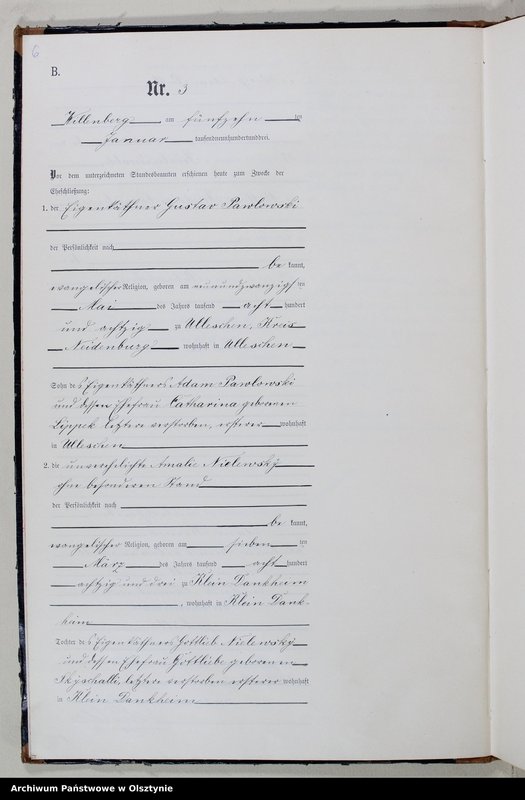 6
B.
Nr. 3
Willenberg am fünfzehn ten
Januar tausendneunhundertunddrei.
Vor dem unterzeichneten Standesbeamten erschienen heute zum Zwecke der
Eheschließung:
1. der Eigenkäthner Gustav Pawlowski
der Persönlichkeit nach
be kannt,
evangelischer Religion, geboren am neunundzwanzigs ten
Mai des Jahres tausend acht hundert
und achtzig zu Ulleschen, Kreis
Neidenburg wohnhaft in Ulleschen
Sohn des Eigenkäthners Adam Pawlowski
und dessen Ehefrau Catharina geborenen
Lippek letztere verstorben, ersterer wohnhaft
in Ulleschen
2. die unverehelichte Amalie Nielewsky
ohne besonderen Stand
der Persönlichkeit nach
be kannt,
evangelischer Religion, geboren am sieben ten
März des Jahres tausend acht hundert
achtzig und drei zu Klein Dankheim
, wohnhaft in Klein Dank-
heim
Tochter des Eigenkäthners Gottlieb Nielewsky
und dessen Ehefrau Gottliebe geborenen
letztere verstorben ersterer wohnhaft
in Klein Dankheim
Archiwum Państwowe w Olsztynie